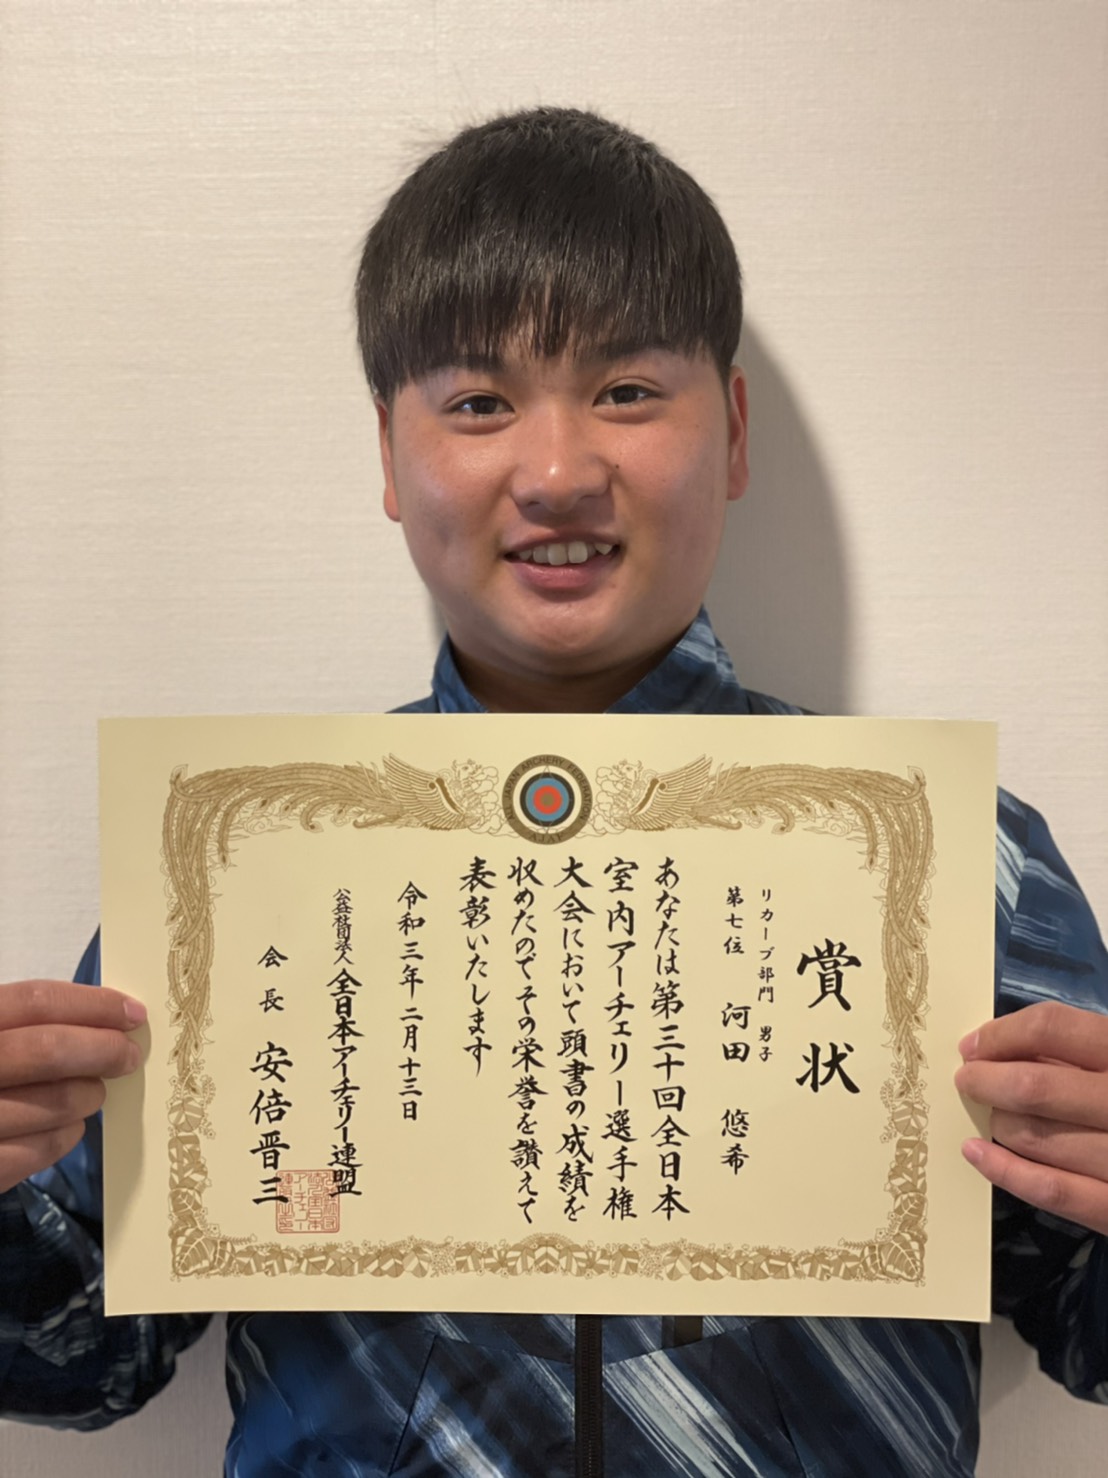 賞状
リカーブ部門 男子
第七位 河田 悠希
あなたは第三十回全日本
室内アーチェリー選手権
大会において頭書の成績を
収めたのでその栄誉を讃えて
表彰いたします
令和三年二月十三日
公益社団法人 全日本アーチェリー連盟
会長 安倍晋三
ALL JAPAN ARCHERY FEDERATION
AJAF